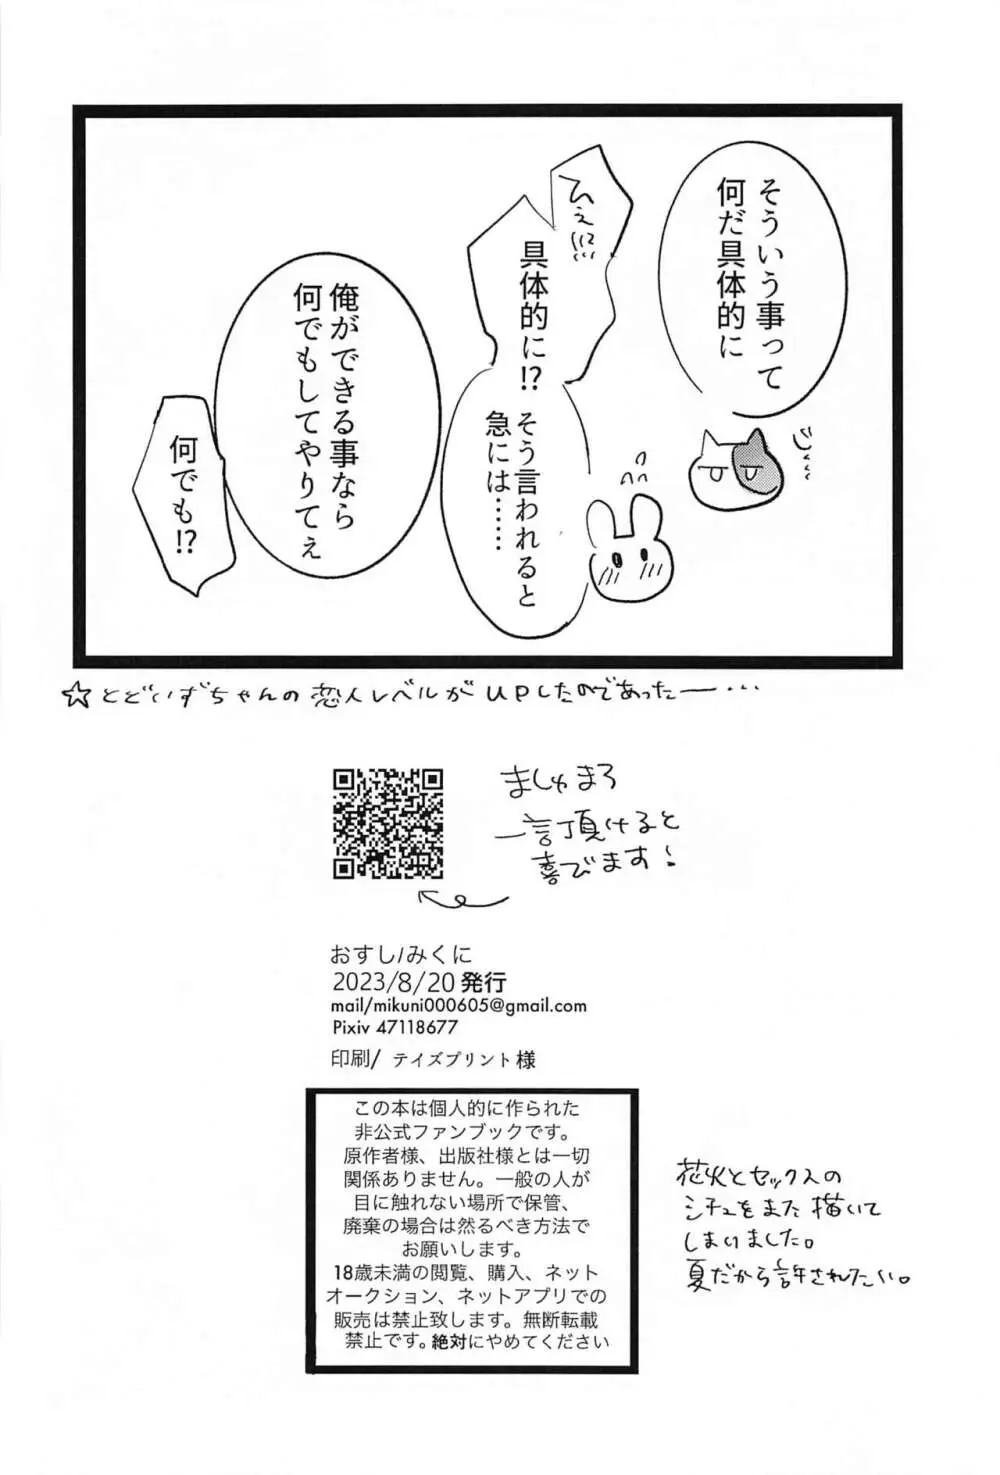 そういう事って
何だ具体的に
ジッ…
ひぇ!!!
具体的に⁉
そう言われると
急には……
俺ができる事なら
何でもしてやりてぇ
何でも⁉
☆とどいずちゃんの恋人レベルがUPしたのであったー・・・
ましゅまろ
一言頂けると
喜びます!
おすし/みくに
2023/8/20 発行
mail/mikuni000605@gmail.com
Pixiv 47118677
印刷/ テイズプリント様
この本は個人的に作られた
非公式ファンブックです。
原作者様、出版社様とは一切
関係ありません。一般の人が
目に触れない場所で保管、
廃棄の場合は然るべき方法で
お願いします。
18歳未満の閲覧、購入、ネット
オークション、ネットアプリでの
販売は禁止致します。無断転載
禁止です。絶対にやめてください
花火とセックスの
シチュをまた描いて
しまいました。
夏だから許されたい。